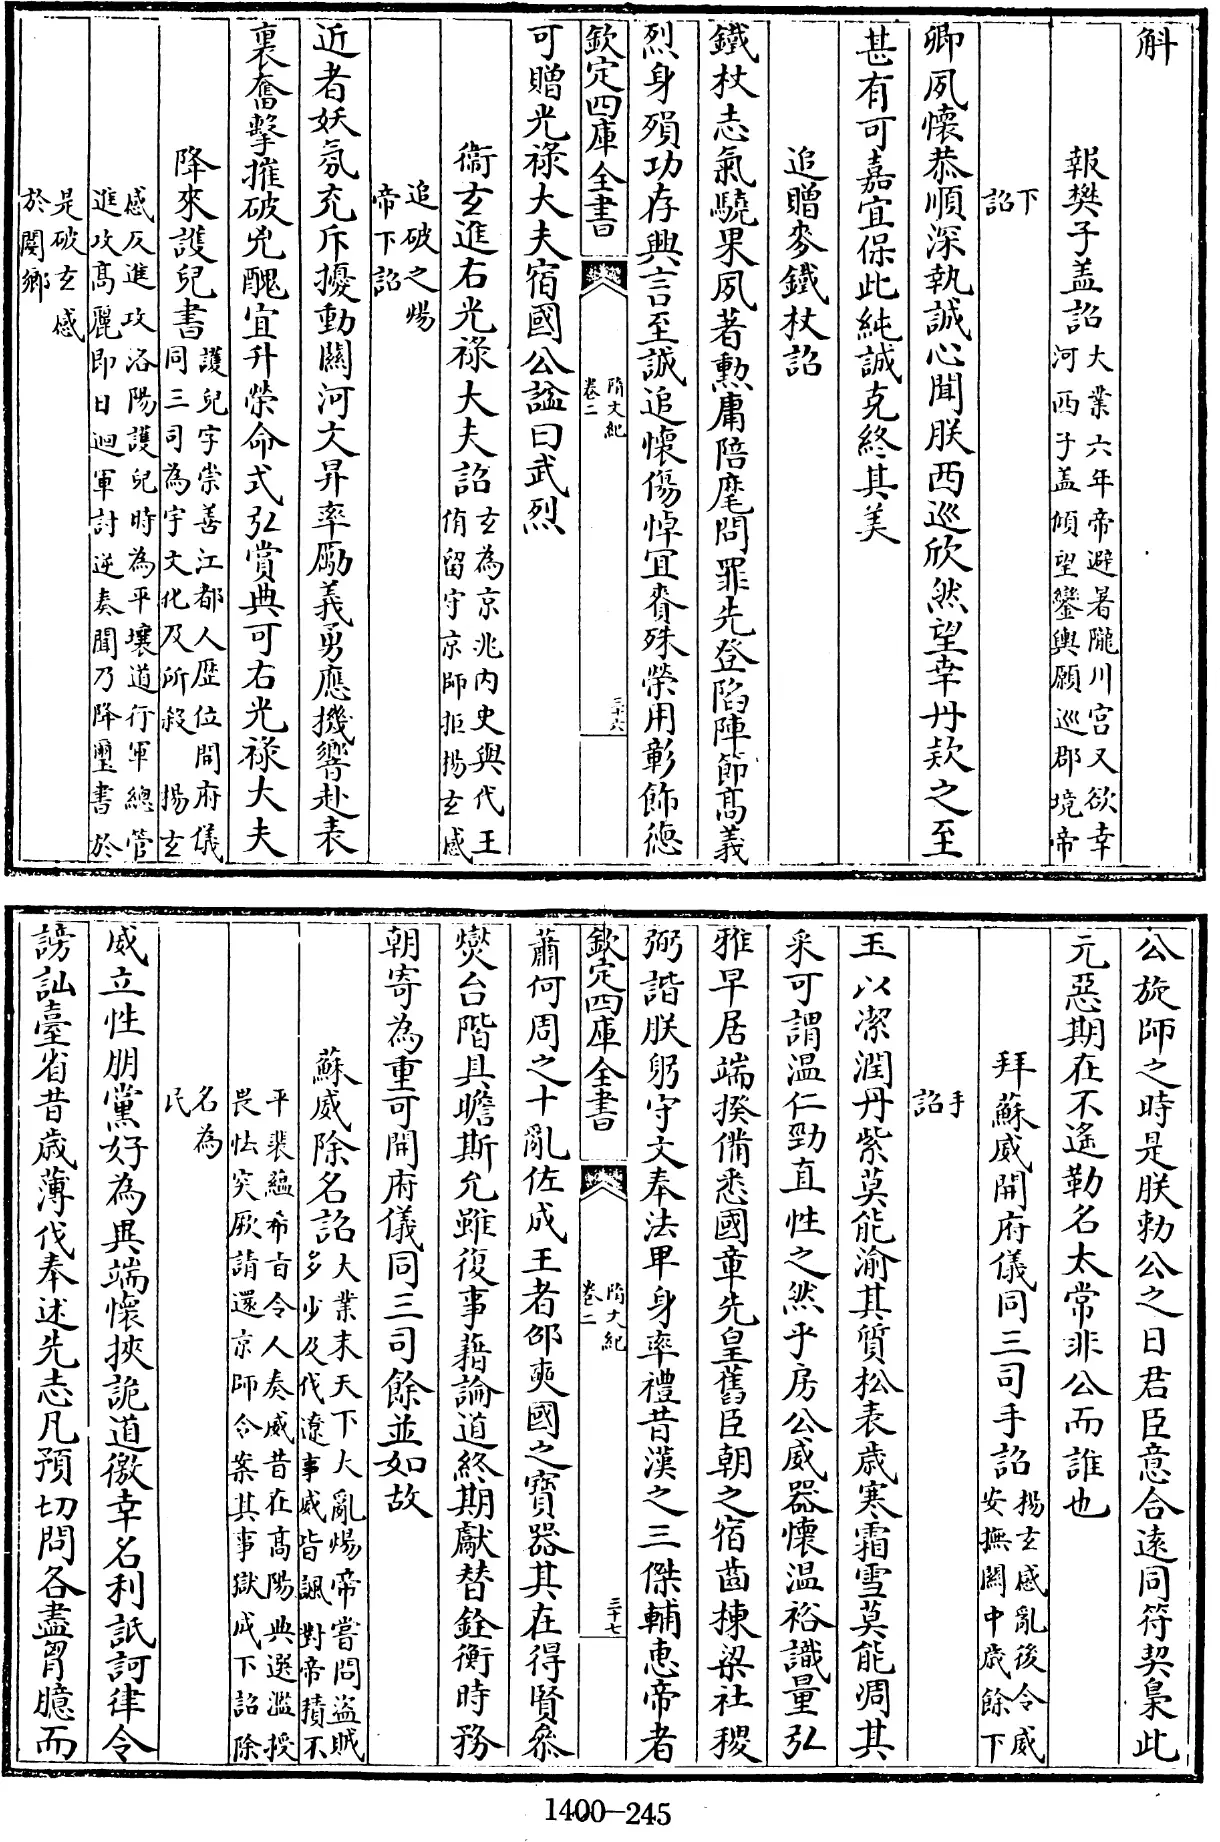 斛
報樊子盖詔大業六年帝避暑隴川宫又欲幸
河西子盖傾望鑾輿願巡郡境帝
下
詔
卿夙懷恭順深執誠心聞朕西巡欣然望幸丹欵之至
甚有可嘉宜保此純誠克終其美
追贈麥鐵杖詔
鐵杖志氣驍果夙著勲庸陪麾問罪先登陷陣節髙義
烈身殞功存興言至誠追懷傷悼宜賚殊榮用彰飾徳
欽定四庫全書
隋文紀
卷二
三十六
可贈光祿大夫宿國公諡曰武烈
衞玄進右光祿大夫詔玄為京兆内史與代王
侑留守京師拒楊玄感
追破之煬
帝下詔
近者妖氛充斥擾動關河文昇率勵義勇應機響赴表
裏奮擊摧破兇醜宜升榮命式弘賞典可右光祿大夫
降來護兒書護兒字崇善江都人歴位開府儀
同三司為宇文化及所殺 楊玄
感反進攻洛陽護兒時為平壤道行軍總管
進攻髙麗即日迴軍討逆奏聞乃降璽書於
是破玄感
於閿鄉
公旋師之時是朕勅公之日君臣意合遠同符契梟此
元惡期在不遙勒名太常非公而誰也
拜蘇威開府儀同三司手詔楊玄感亂後令威
安撫關中歳餘下
手
詔
玉以潔潤丹紫莫能渝其質松表歳寒霜雪莫能凋其
采可謂温仁勁直性之然乎房公威器懷温裕識量弘
雅早居端揆備悉國章先皇舊臣朝之宿齒棟梁社稷
弼諧朕躬守文奉法卑身率禮昔漢之三傑輔惠帝者
欽定四庫全書
隋文紀
卷二
三十七
蕭何周之十亂佐成王者邵奭國之寳器其在得賢叅
燮台階具瞻斯允雖復事藉論道終期獻替銓衡時務
朝寄為重可開府儀同三司餘並如故
蘇威除名詔大業末天下大亂煬帝嘗問盜賊
多少及伐遼事威皆諷對帝積不
平裴蘊希旨令人奏威昔在髙陽典選濫授
畏怯突厥請還京師令案其事獄成下詔除
名為
民
威立性朋黨好為異端懷挾詭道徼幸名利詆訶律令
謗訕臺省昔歳薄伐奉述先志凡預切問各盡胷臆而
1400-245